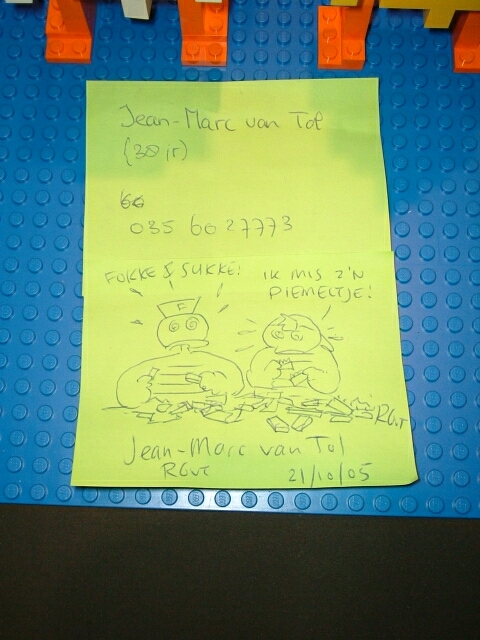 Jean-Marc van Tol
(38 jr)
66
035 6027773
FOKKE & SUKKE!
IK MIS Z'N
PIEMELTJE!
F
RGvT
Jean-Marc van Tol
RGvT 21/10/05